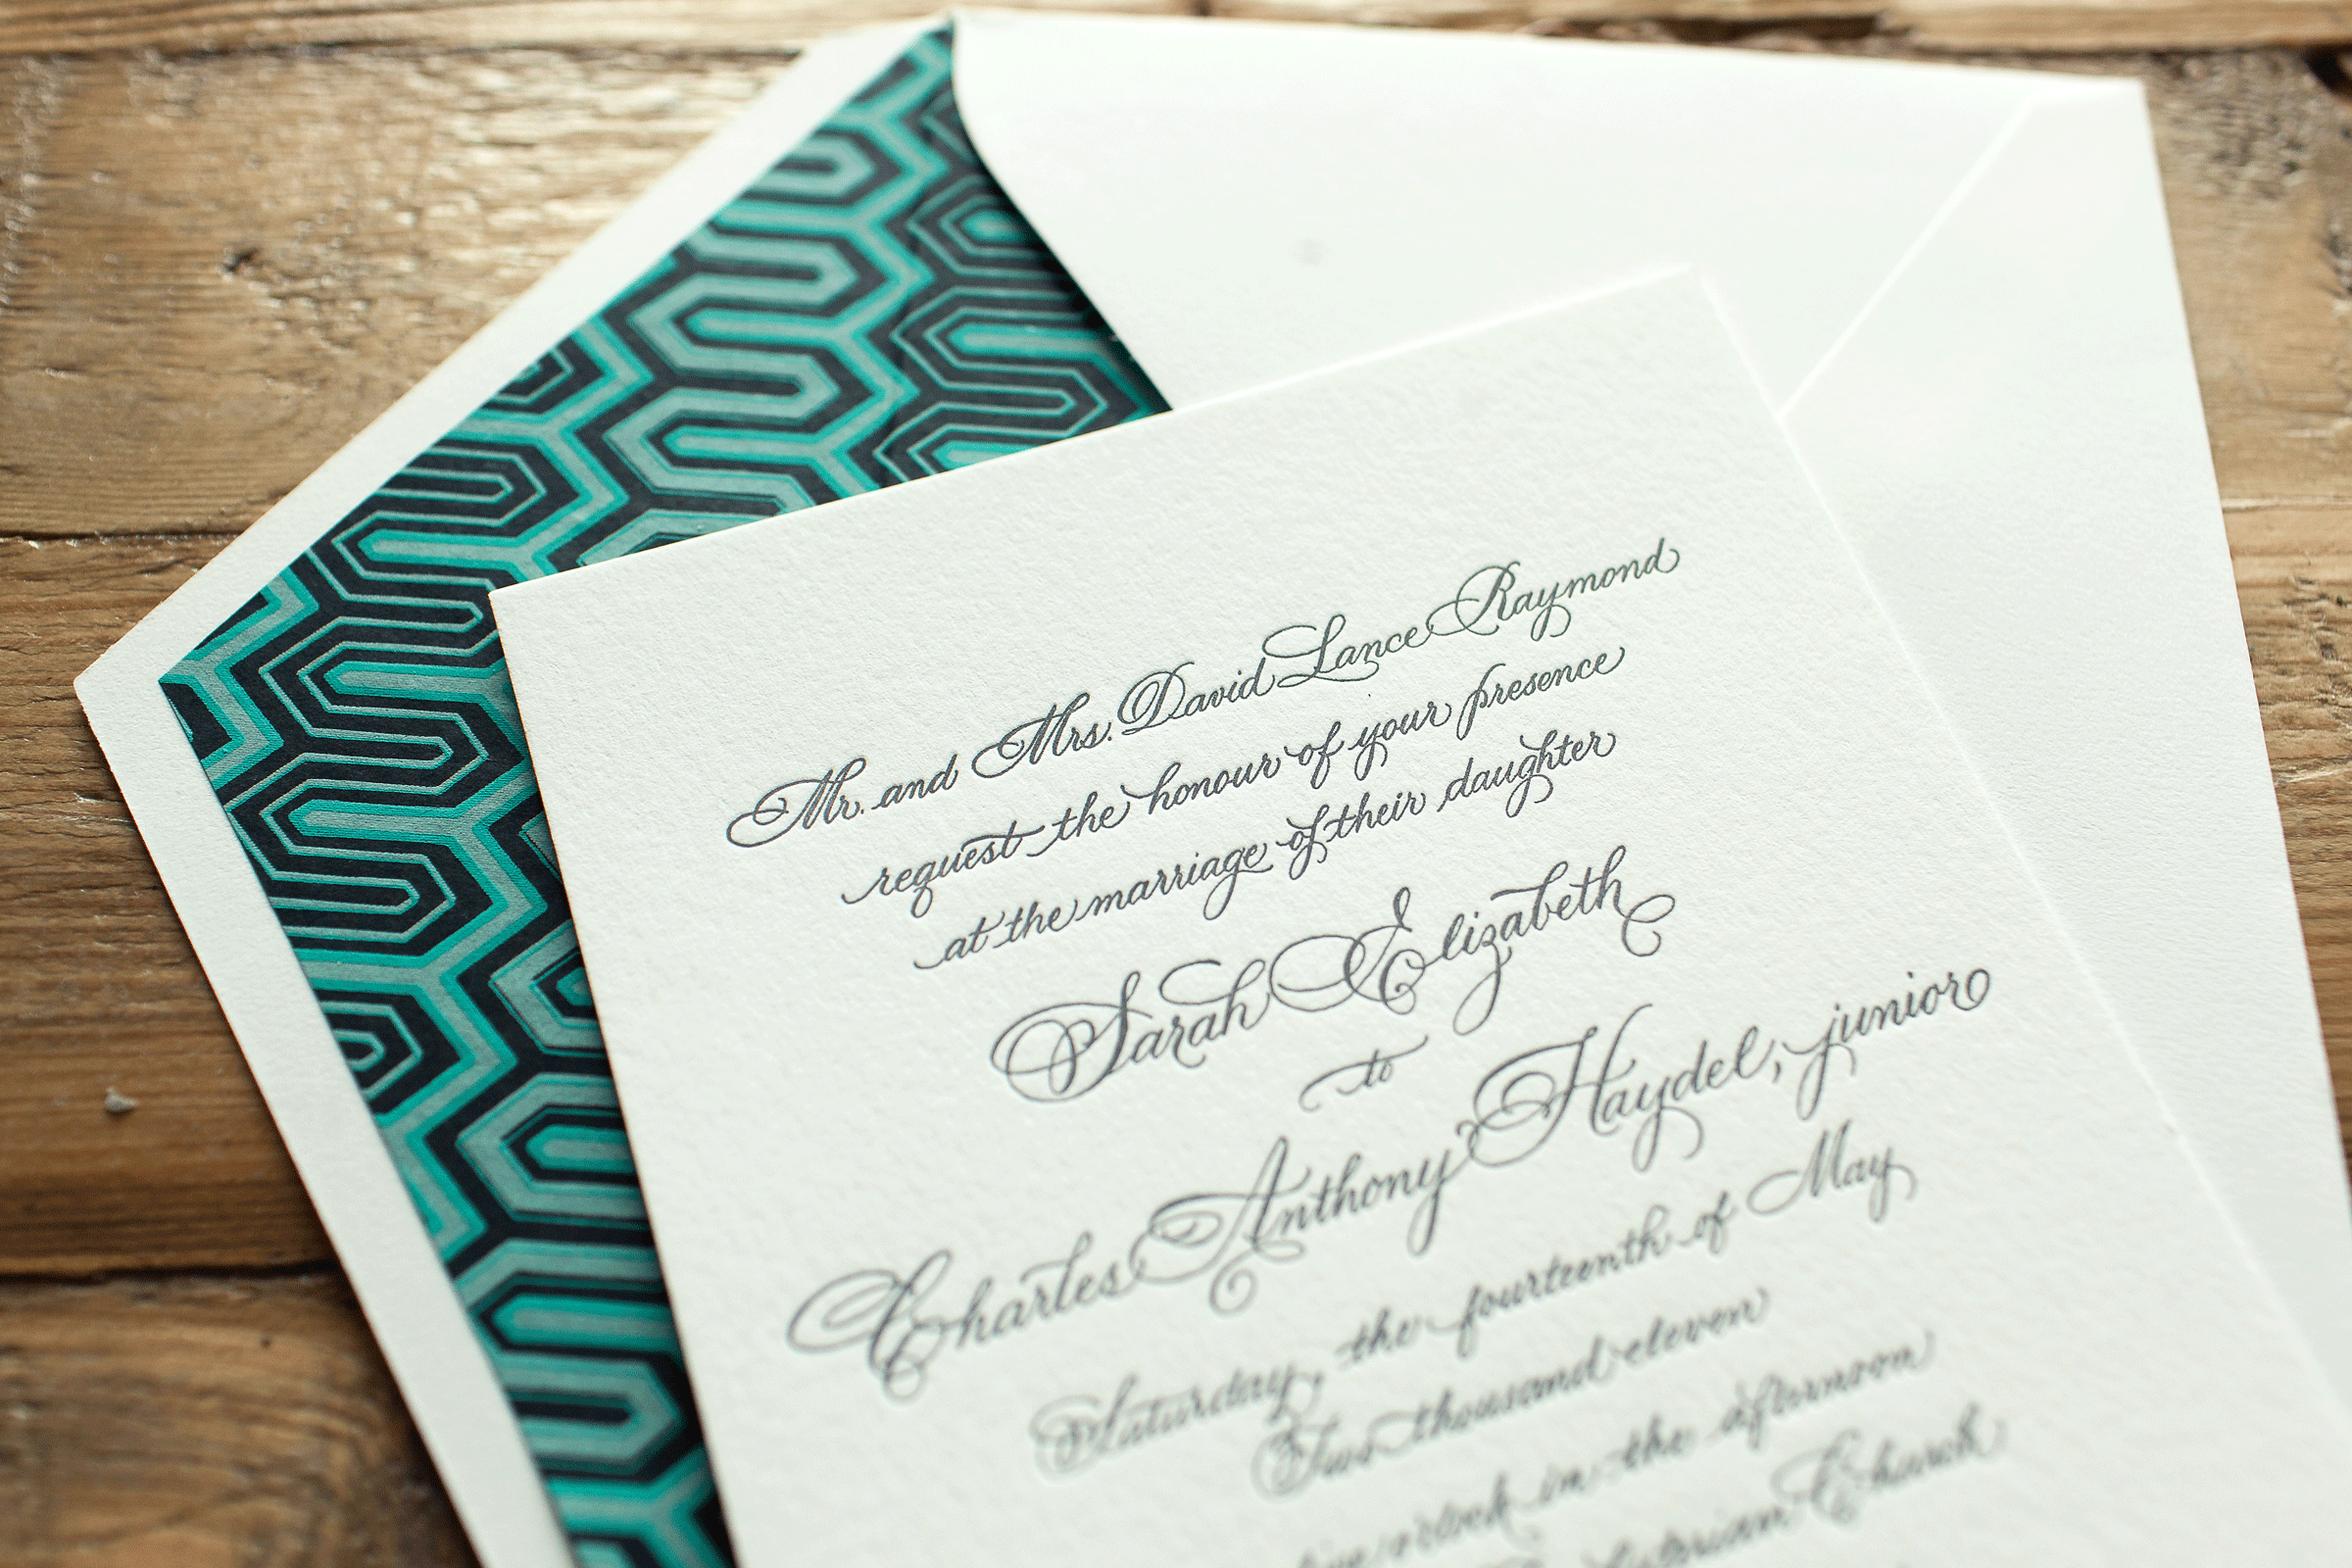 Mr. and Mrs. David Lance Raymond
request the honour of your presence
at the marriage of their daughter
Sarah Elizabeth
to
Charles Anthony Haydel, junior
Saturday, the fourteenth of May
Two thousand eleven
o'clock in the afternoon
Church